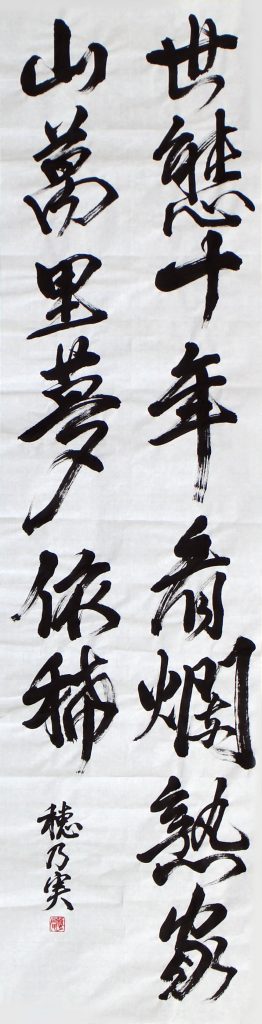 世態十年看爛熟家
山萬里夢依稀
穂乃実